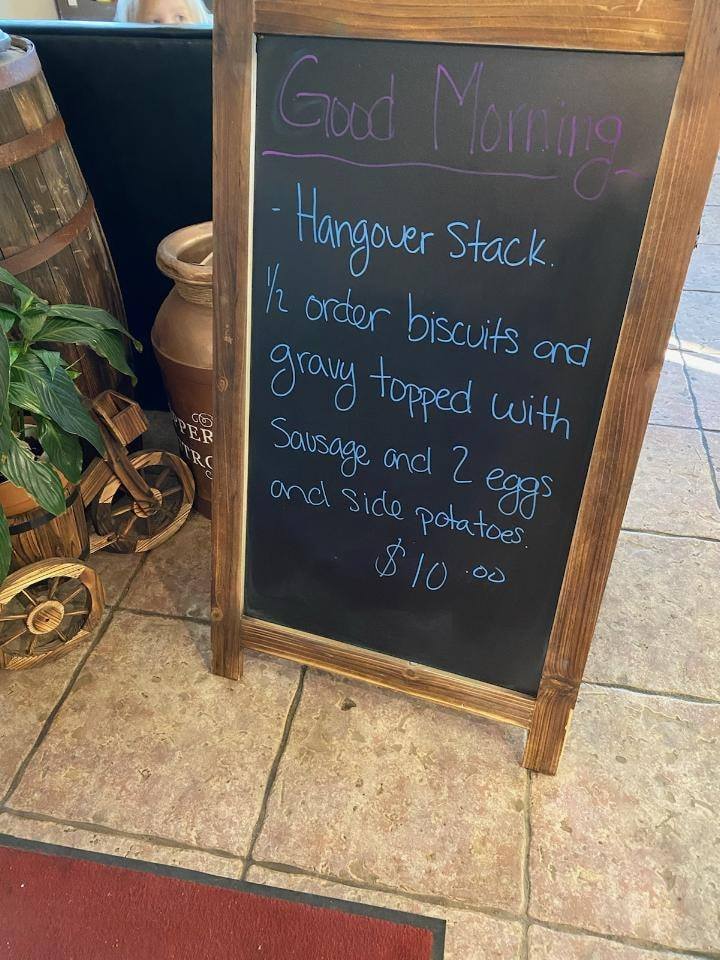 Good Morning
- Hangover Stack.
1/2 order biscuits and
gravy topped with
Sausage and 2 eggs
and side potatoes.
$10.00